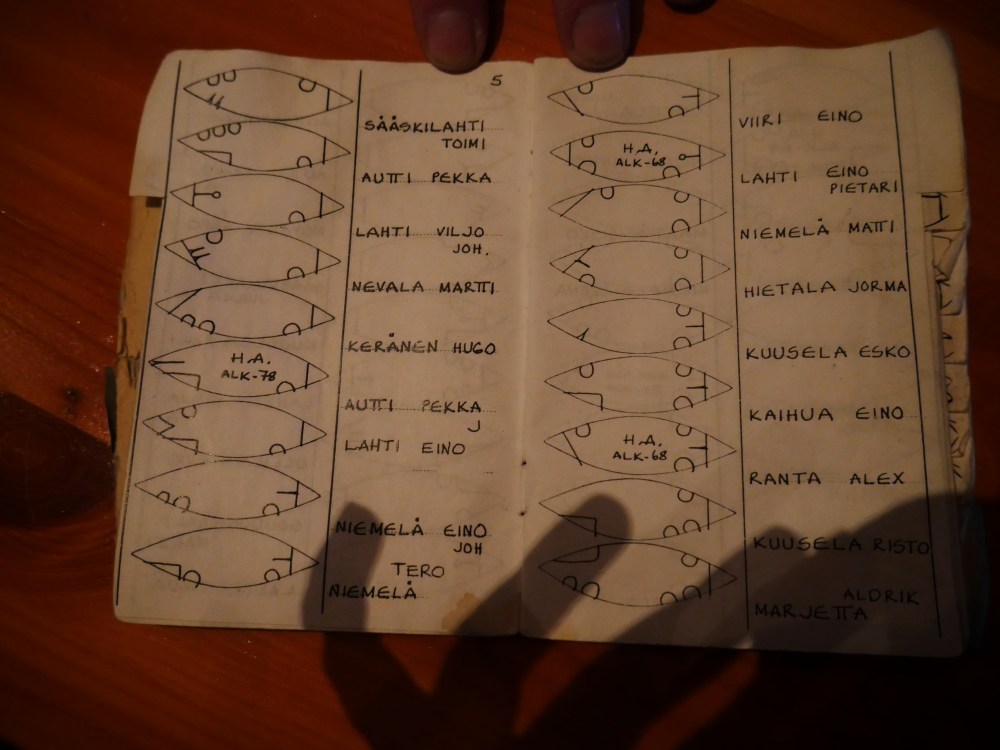 5
SÄÄSKILAHTI
TOIMI
AUTTI PEKKA
LAHTI VILJO
JOH.
NEVALA MARTTI
KERÄNEN HUGO
H.A.
ALK-78
AUTTI PEKKA
J
LAHTI EINO
NIEMELÄ EINO
JOH
TERO
NIEMELÄ
VIIRI EINO
H.A.
ALK-68
LAHTI EINO
PIETARI
NIEMELÄ MATTI
HIETALA JORMA
KUUSELA ESKO
KAIHUA EINO
H.A.
ALK-68
RANTA ALEX
KUUSELA RISTO
ALDRIK
MARJETTA